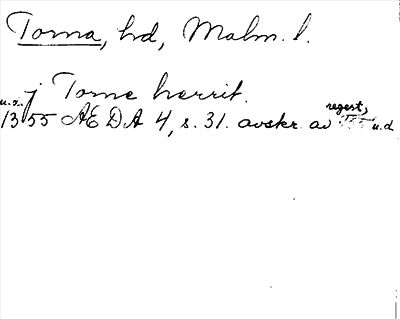 Torna, hd, Malm. l.
j Torne herrit.
regest,
1355 ÆDA 4, s. 31. avskr. av u.d